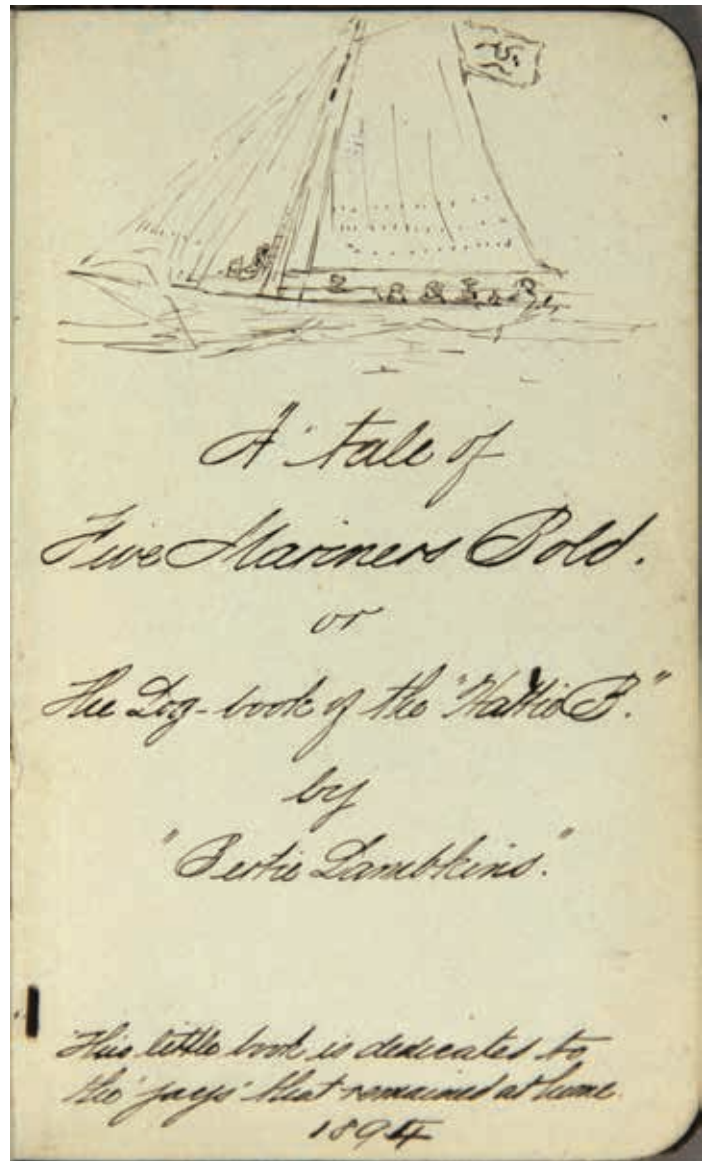 "A" tale of
Five Mariners Bold.
or
The Log-book of the "Hattie B."
by
"Bertie Lambkins."
This little book is dedicated to
the 'jays' that remained at home
1894